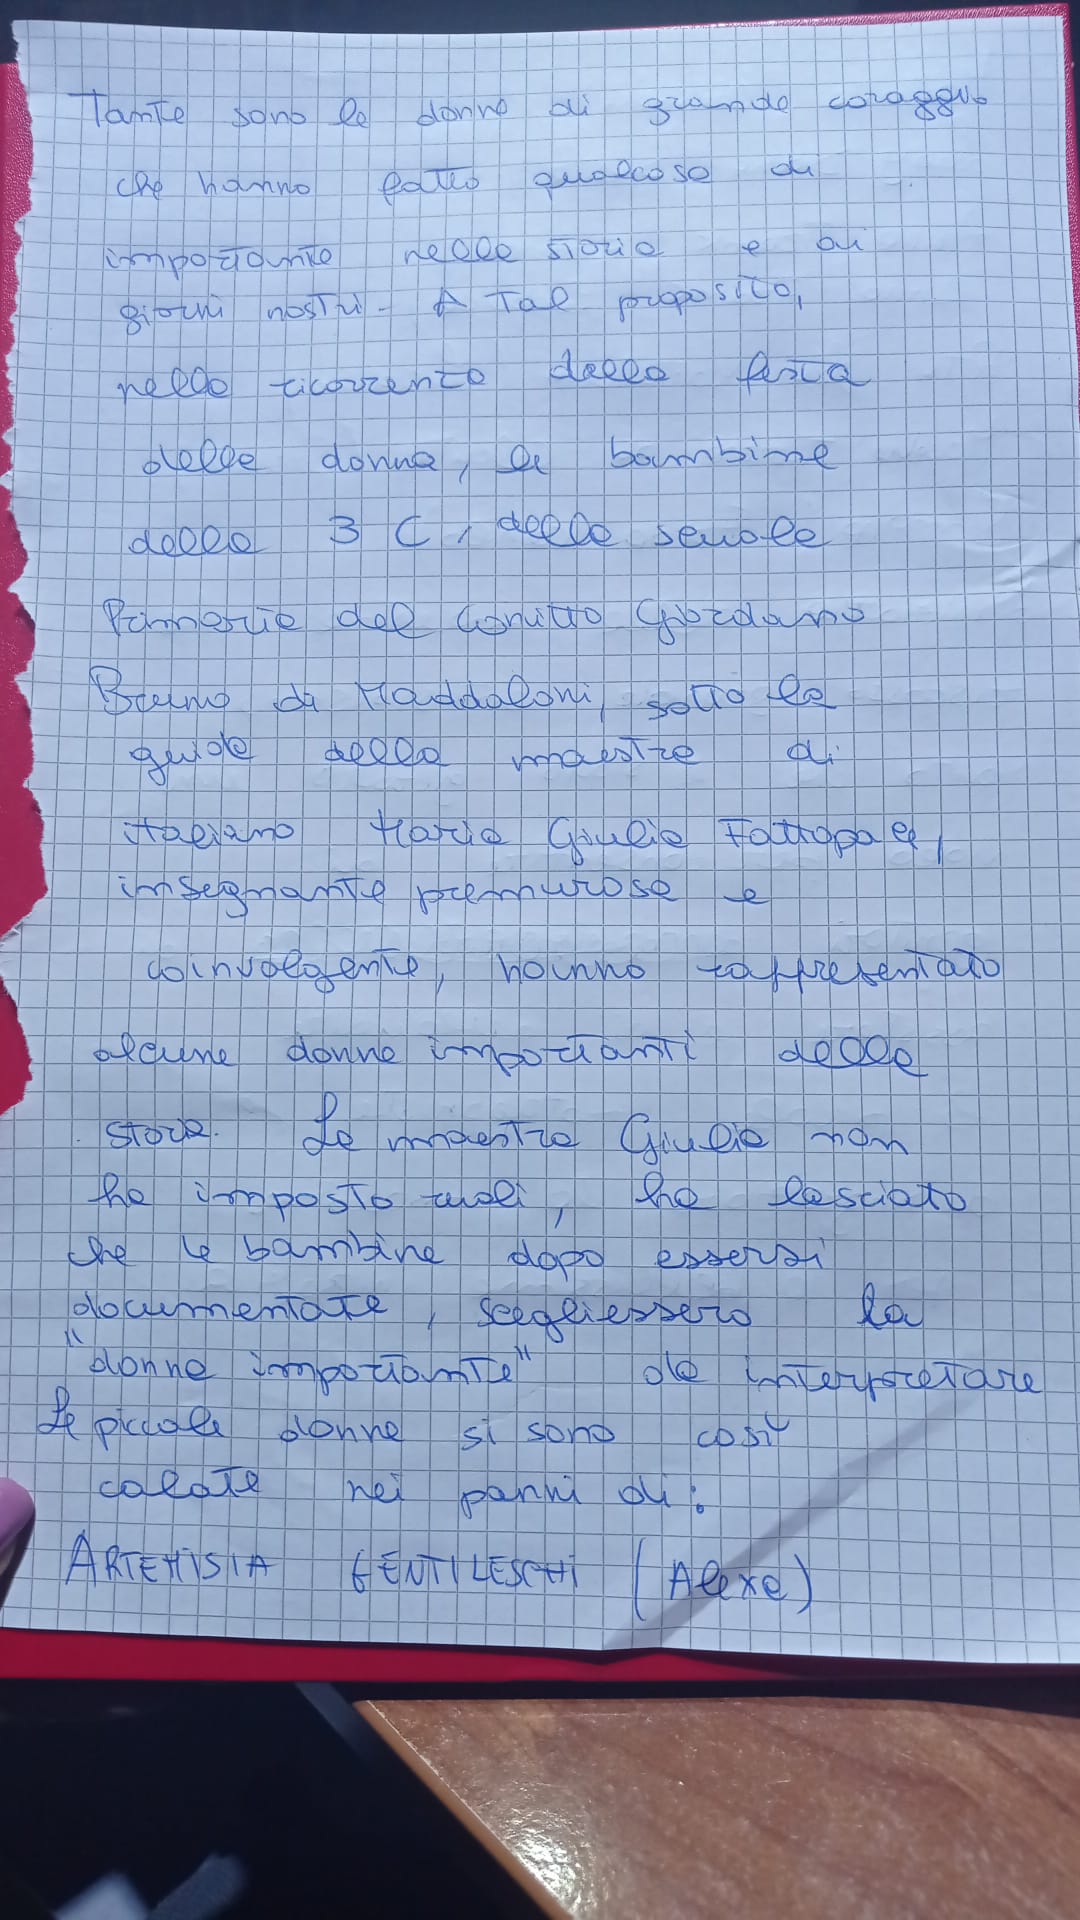 Tante sono le donne di grande coraggio
che hanno fatto qualcosa di
importante nella storia e ai
giorni nostri. A tal proposito,
nella ricorrenza della festa
della donna, le bambine
della 3 C, della scuola
Primaria del Convitto Giordano
Bruno di Maddaloni, sotto la
guida della maestra di
italiano Maria Giulia
insegnante premurosa e
coinvolgente, hanno rappresentato
alcune donne importanti della
storia. La maestra Giulia non
ha imposto ruoli, ha lasciato
che le bambine dopo essersi
documentate, scegliessero la
"donna importante" da interpretare
Le piccole donne si sono così
calate nei panni di:
ARTEMISIA GENTILESCHI (Alexa)